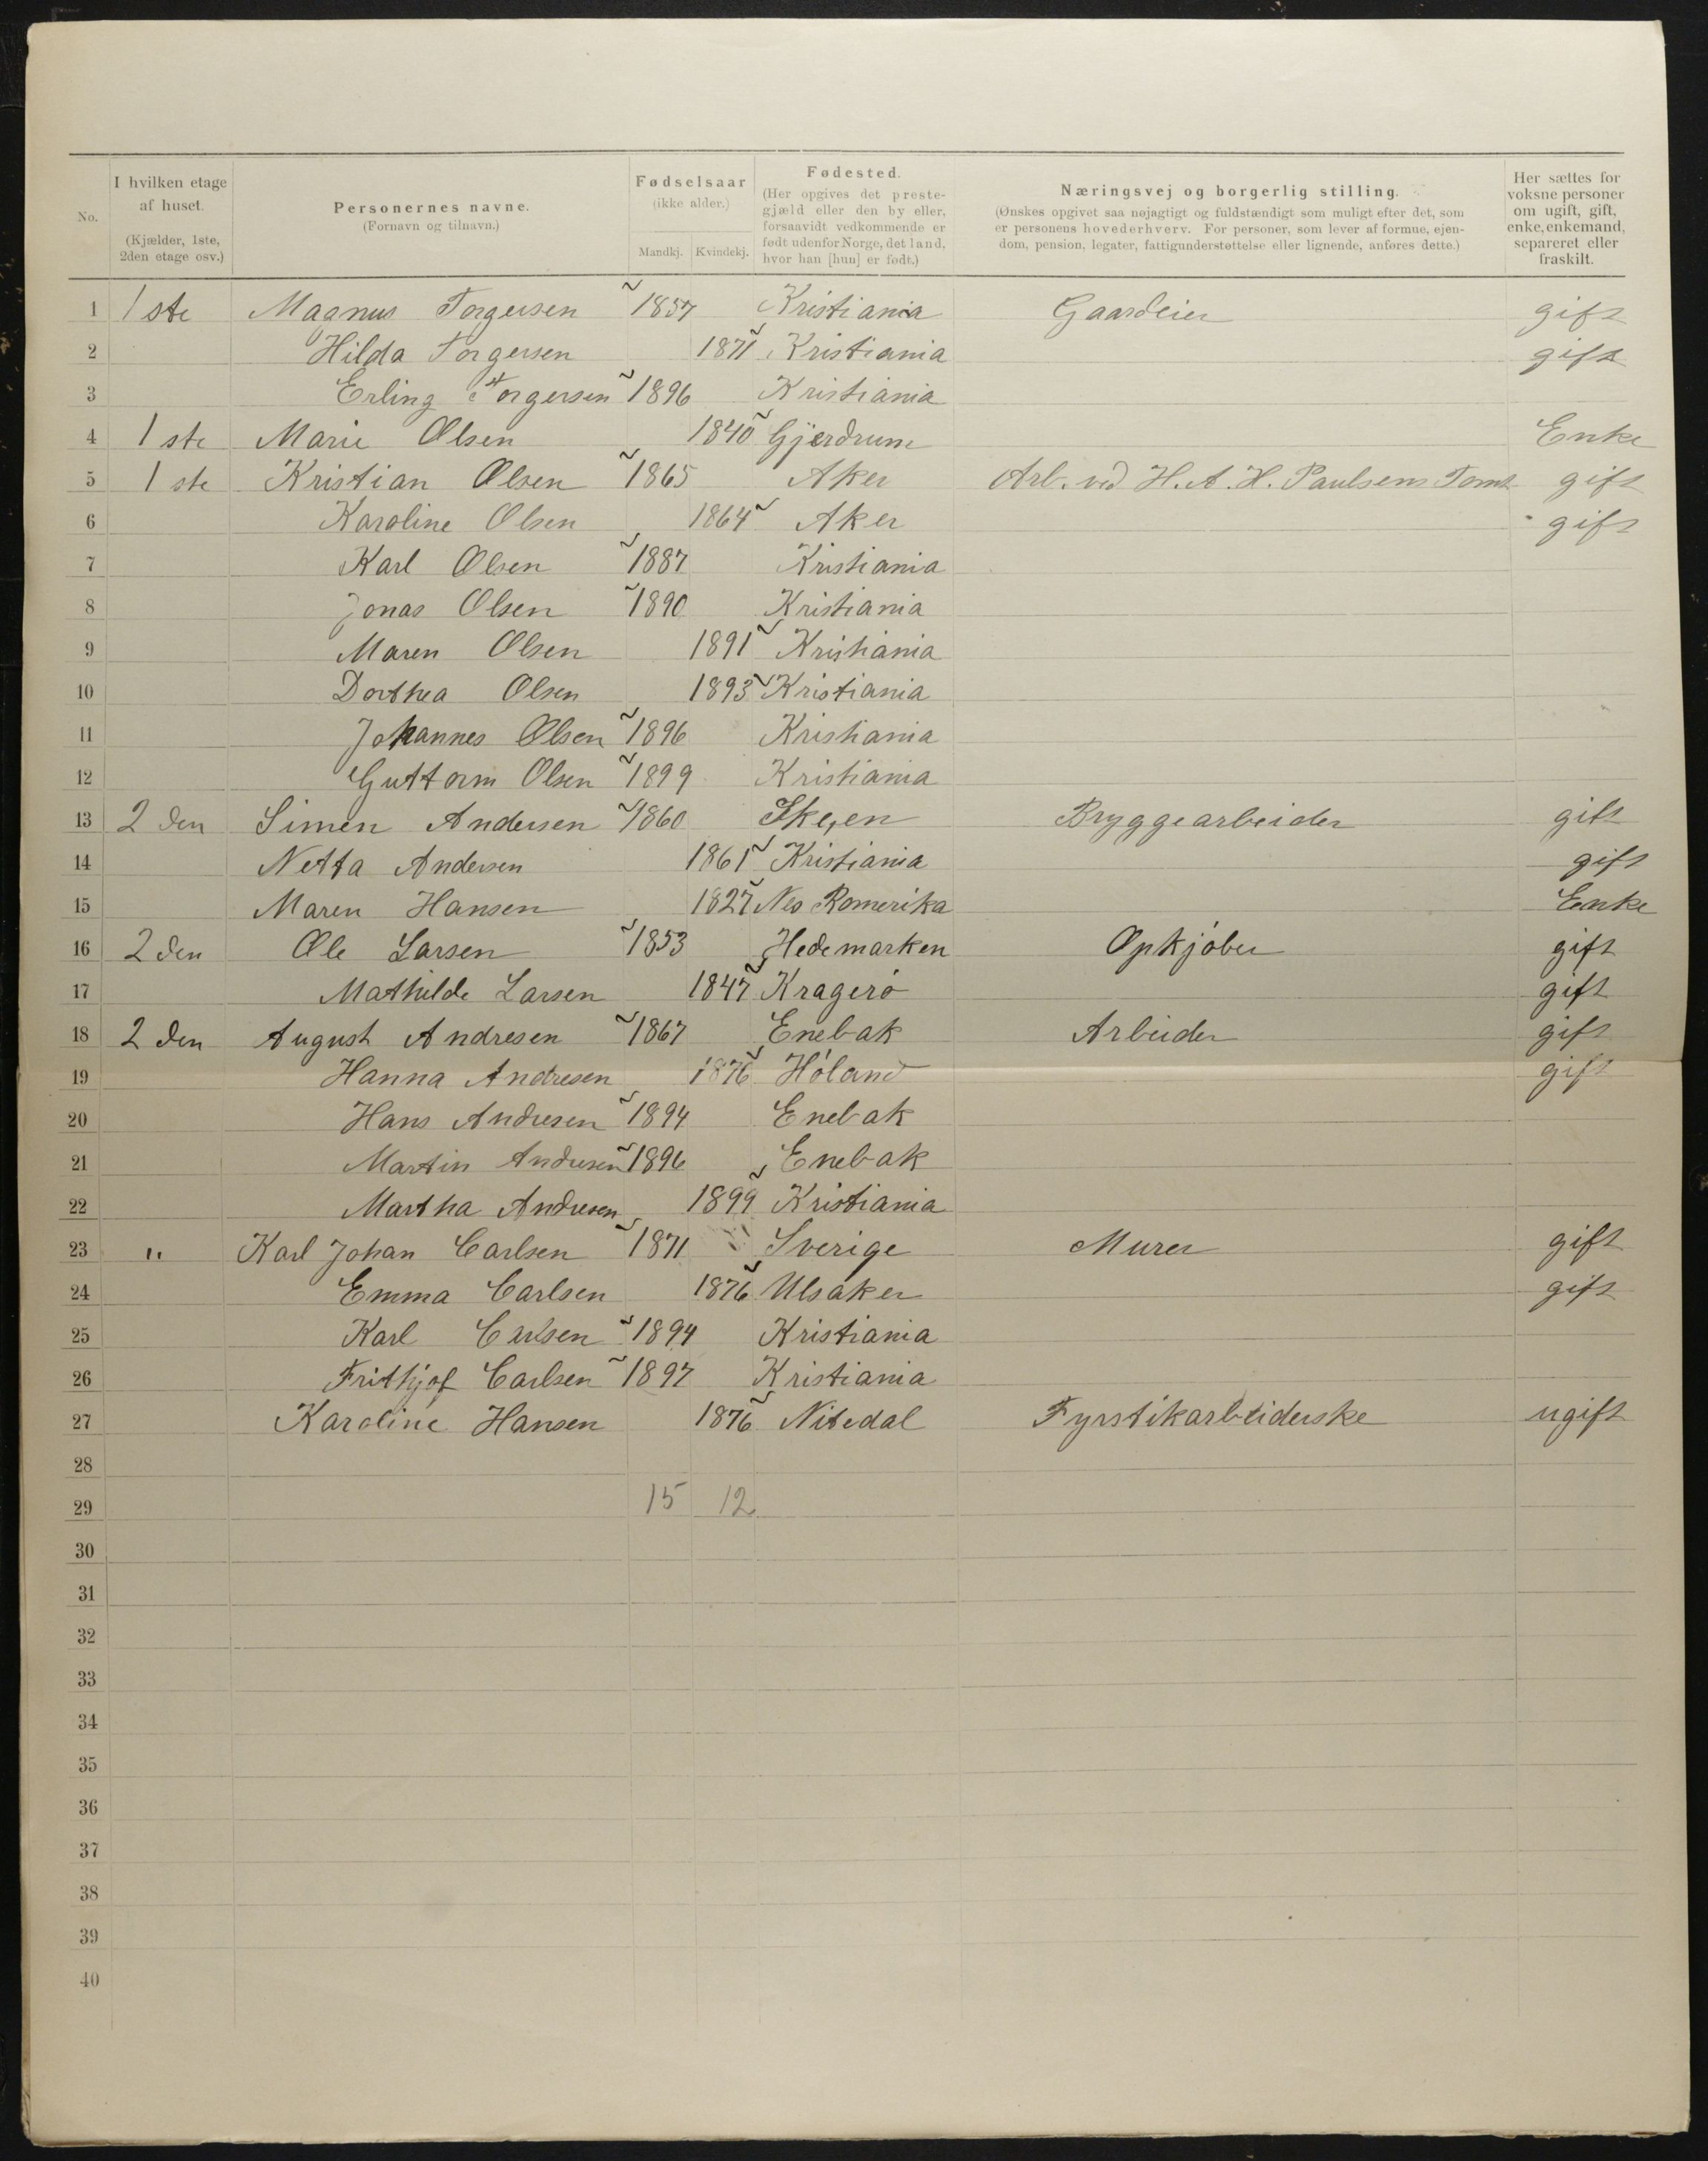 No. | I hvilken etage af huset. (Kjælder, 1ste, 2den etage osv.) | Personernes navne. (Fornavn og tilnavn.) | Fødselsaar (ikke alder.) Mandkj. Kvindekj. | Fødested. (Her opgives det prestegjæld eller den by eller, forsaavidt vedkommende er født udenfor Norge, det land, hvor han [hun] er født.) | Næringsvej og borgerlig stilling. (Ønskes opgivet saa nøjagtigt og fuldstændigt som muligt efter det, som er personens hovederhverv. For personer, som lever af formue, ejendom, pension, legater, fattigunderstøttelse eller lignende, anføres dette.) | Her sættes for voksne personer om ugift, gift, enke, enkemand, separeret eller fraskilt.
1 1ste Magnus Torgersen 1857 Kristiania Gaardeier gift
2 Hilda Torgersen 1871 Kristiania gift
3 Erling Torgersen 1896 Kristiania
4 1ste Marie Olsen 1840 Gjerdrum Enke
5 1ste Kristian Olsen 1865 Aker Arb. ved H. A. H. Paulsens Tomt gift
6 Karoline Olsen 1864 Aker gift
7 Karl Olsen 1887 Kristiania
8 Jonas Olsen 1890 Kristiania
9 Maren Olsen 1891 Kristiania
10 Dorthea Olsen 1893 Kristiania
11 Johannes Olsen 1896 Kristiania
12 Guttorm Olsen 1899 Kristiania
13 2den Simen Andersen 1860 Skeen Bryggearbeider gift
14 Netta Andersen 1861 Kristiania gift
15 Maren Hansen 1827 Nes Romerika Enke
16 2den Ole Larsen 1853 Hedemarken Opkjøber gift
17 Mathilde Larsen 1847 Kragerø gift
18 2den August Andresen 1867 Enebak Arbeider gift
19 Hanna Andresen 1876 Høland gift
20 Hans Andresen 1894 Enebak
21 Martin Andresen 1896 Enebak
22 Martha Andresen 1899 Kristiania
23 " Karl Johan Carlsen 1871 Sverige Murer gift
24 Emma Carlsen 1876 Ulsaker gift
25 Karl Carlsen 1894 Kristiania
26 Frithjof Carlsen 1897 Kristiania
27 Karoline Hansen 1876 Nitedal Fyrstikarbeiderske ugift
28
29 15 12
30
31
32
33
34
35
36
37
38
39
40